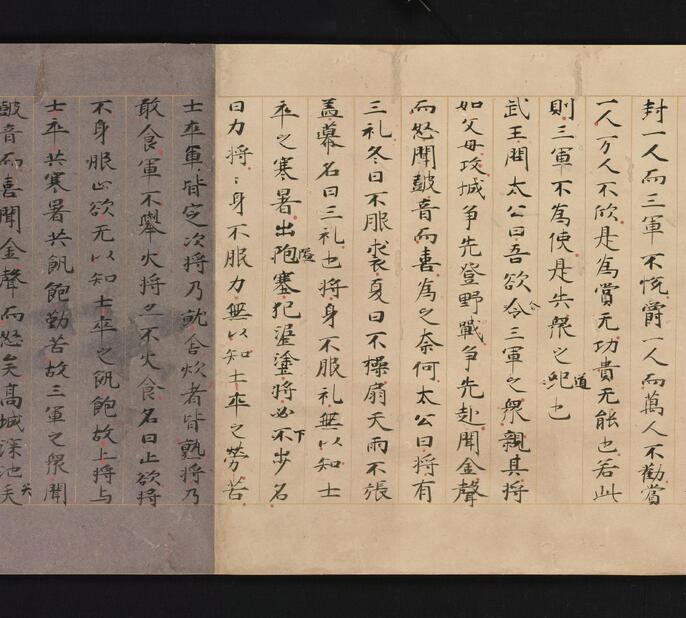 封一人而三軍不悅爵一人而萬人不勸賞
一人万人不欣是為賞无功貴无能也若此
則三軍不為使是失衆之紀道也
武王問太公曰吾欲令三軍之衆親其將
如父母攻城争先登野戰争先赴聞金聲
而怒聞皷音而喜為之奈何太公曰將有
三礼冬日不服裘夏日不操扇天雨不張
盖幕名曰三礼也將身不服礼無以知士
卒之寒暑出陁隘塞犯渥塗將必不下步名
曰力將〻身不服力無以知士卒之勞苦
士卒軍皆定次將乃就舍炊者皆熟將乃
敢食軍不舉火將之不火食名曰止欲將
不身服止欲无以知士卒之飢飽故上將与
士卒共寒暑共飢飽勤苦故三軍之衆聞
皷音而喜聞金聲而怒矣高城深池矢